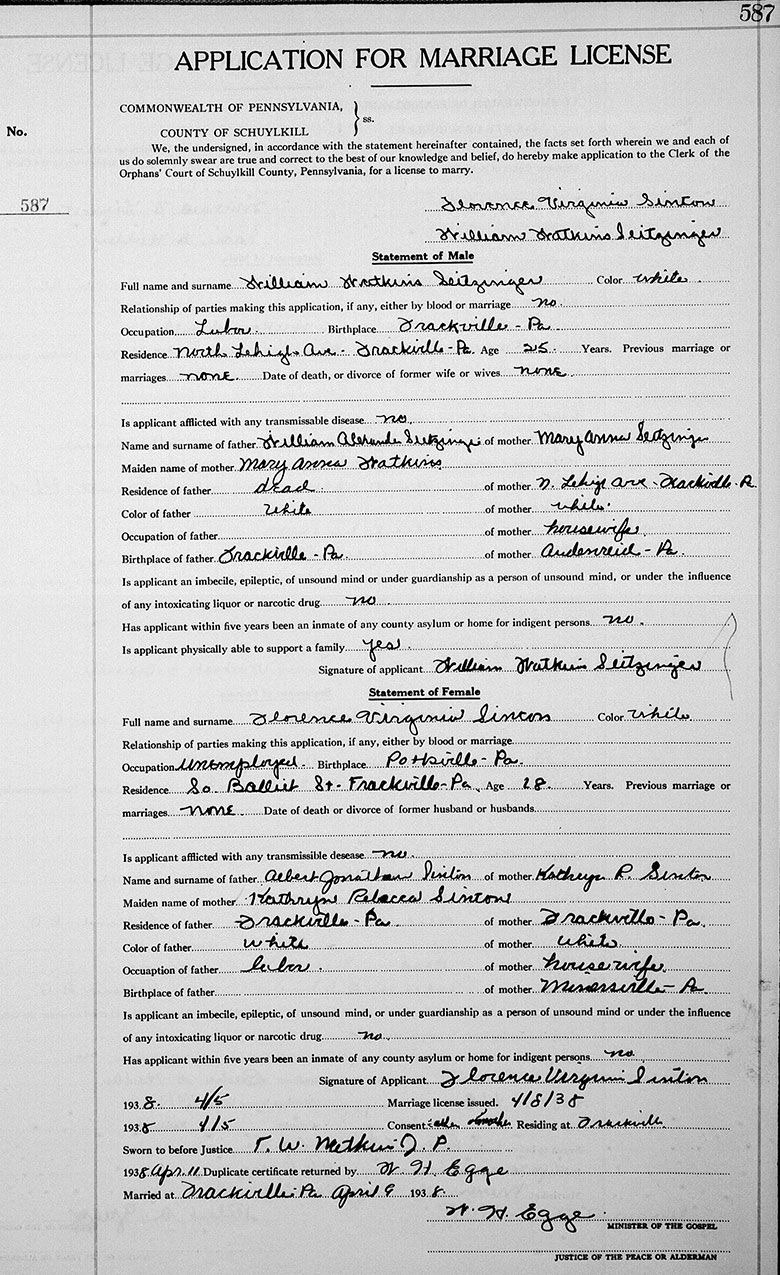 587
APPLICATION FOR MARRIAGE LICENSE
COMMONWEALTH OF PENNSYLVANIA,
ss.
No.
COUNTY OF SCHUYLKILL
We, the undersigned, in accordance with the statement hereinafter contained, the facts set forth wherein we and each of
us do solemnly swear are true and correct to the best of our knowledge and belief, do hereby make application to the Clerk of the
Orphans' Court of Schuylkill County, Pennsylvania, for a license to marry.
587
Florence Virginia Sinton
William Watkins Seitzinger
Statement of Male
Full name and surname William Watkins Seitzinger Color White
Relationship of parties making this application, if any, either by blood or marriage no
Occupation Labor Birthplace Frackville - Pa.
Residence North Lehigh Ave - Frackville - Pa. Age 25 Years. Previous marriage or
marriages none Date of death, or divorce of former wife or wives none
Is applicant afflicted with any transmissable disease no
Name and surname of father William Alexander Seitzinger of mother Mary Anna Seitzinger
Maiden name of mother Mary Anna Watkins
Residence of father dead of mother N. Lehigh Ave - Frackville - Pa
Color of father White of mother White
Occupation of father of mother housewife
Birthplace of father Frackville - Pa. of mother Audenreid - Pa.
Is applicant an imbecile, epileptic, of unsound mind or under guardianship as a person of unsound mind, or under the influence
of any intoxicating liquor or narcotic drug no
Has applicant within five years been an inmate of any county asylum or home for indigent persons no.
Is applicant physically able to support a family yes
Signature of applicant William Watkins Seitzinger
Statement of Female
Full name and surname Florence Virginia Sinton Color White
Relationship of parties making this application, if any, either by blood or marriage
Occupation Unemployed Birthplace Pottsville - Pa.
Residence So. Balliet St - Frackville - Pa. Age 28 Years. Previous marriage or
marriages none Date of death or divorce of former husband or husbands
Is applicant afflicted with any transmissible desease no
Name and surname of father Albert Jonathan Sinton of mother Kathryn R. Sinton
Maiden name of mother Kathryn Rebecca Sinton
Residence of father Frackville - Pa of mother Frackville - Pa.
Color of father White of mother White
Occuaption of father labor of mother housewife
Birthplace of father of mother Minersville - Pa.
Is applicant an imbecile, epileptic, of unsound mind, or under guardianship as a person of unsound mind or under the influence
of any intoxicating liquor or narcotic drug no
Has applicant within five years been an inmate of any county asylum or home for indigent persons no
Signature of Applicant Florence Virginia Sinton
1938 4/5 Marriage license issued. 4/8/38
1938 4/5 Consent Residing at Frackville
Sworn to before Justice T. W. Watkins J. P.
1938 Apr. 11 Duplicate certificate returned by W. H. Egge
Married at Frackville Pa April 9 1938
W. H. Egge
MINISTER OF THE GOSPEL
JUSTICE OF THE PEACE OR ALDERMAN